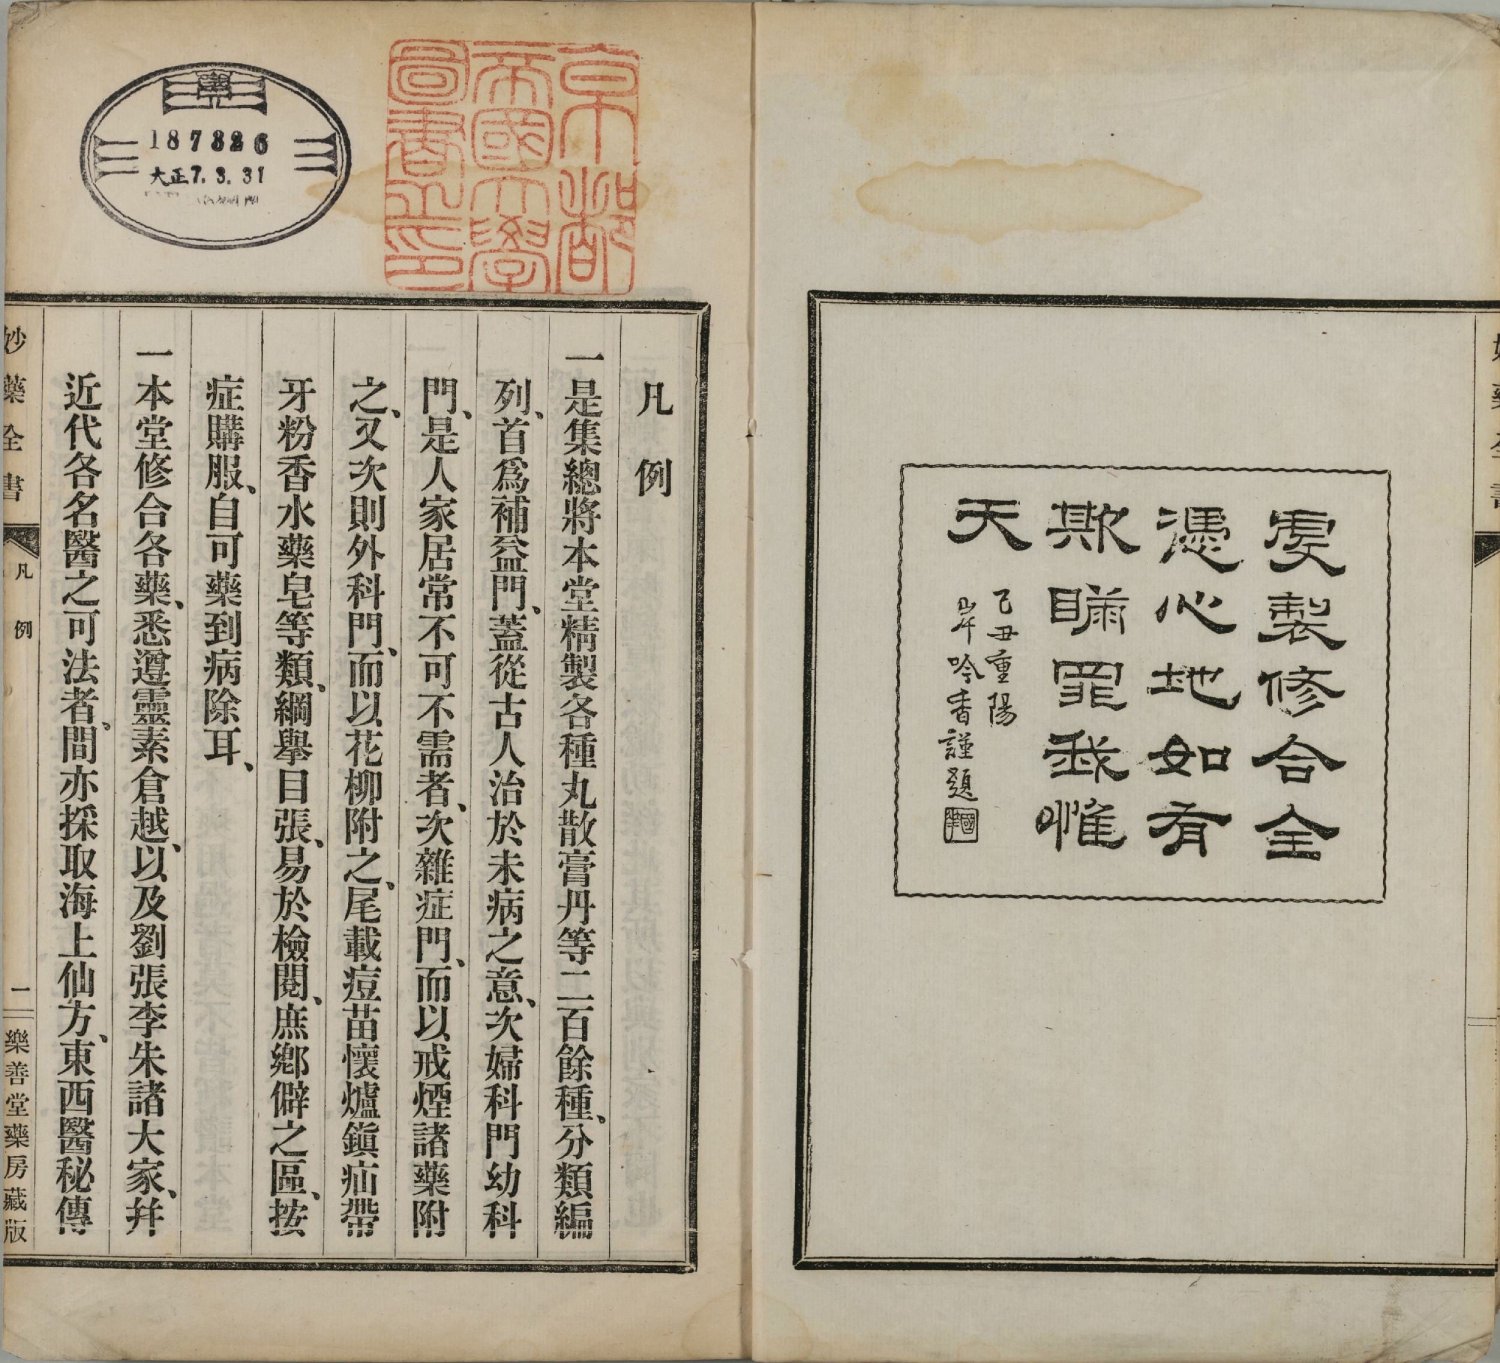 虔製修合全
憑心地如有
欺瞞罪我惟
天
己丑重陽
岸吟香謹題
妙藥全書
京都
帝國大學
圖書之印
187326
大正7.3.31
凡例
一是集總將本堂精製各種丸散膏丹等二百餘種、分類編
列、首爲補益門、蓋從古人治於未病之意、次婦科門幼科
門、是人家居常不可不需者、次雜症門、而以戒煙諸藥附
之、又次則外科門、而以花柳附之、尾載痘苗懷爐鎭疝帶
牙粉香水藥皂等類、綱擧目張、易於檢閱、庶鄕僻之區、按
症購服、自可藥到病除耳、
一本堂修合各藥、悉遵靈素倉越、以及劉張李朱諸大家、幷
近代各名醫之可法者、間亦採取海上仙方、東西醫秘傳
妙藥全書
凡例
一
樂善堂藥房藏版